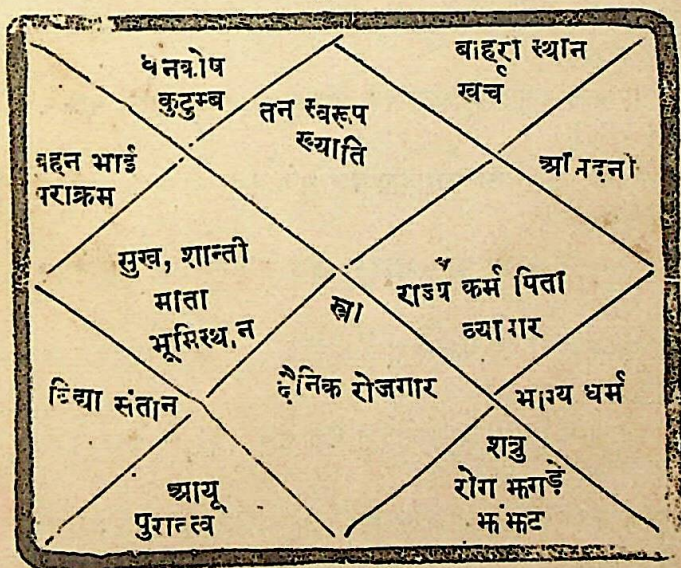 धनकोष
कुटुम्ब
तन स्वरूप
ख्याति
बाहरा स्थान
खर्च
बहन भाई
पराक्रम
आमदनी
सुख, शान्ती
माता
भूमिस्थान
स्त्री
राज्य कर्म पिता
व्यापार
विद्या संतान
दैनिक रोजगार
भाग्य धर्म
आयू
पुरातत्व
शत्रु
रोग झगड़े
झंझट